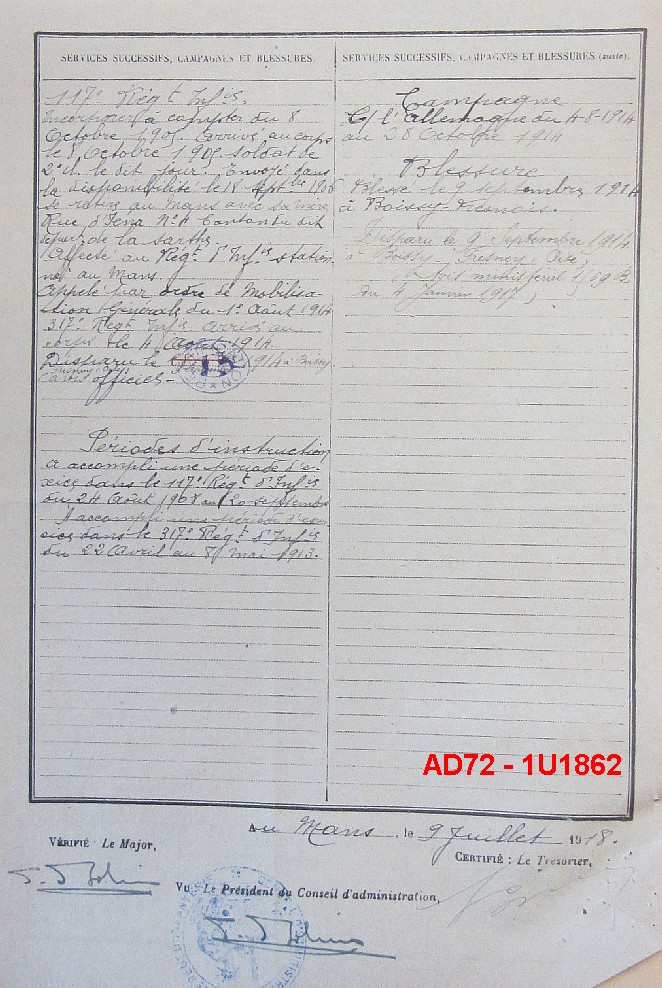 SERVICES SUCCESSIFS, CAMPAGNES ET BLESSURES.
117e Régt Infie.
Incorporé à compter du 8
Octobre 1905. Arrivé au corps
le 8 Octobre 1905. Soldat de
2e cl. le dit jour. Envoyé dans
la disponibilité le 18 Septbre 1906
Se retire au Mans avec sa mère
Rue d'Iéna No 4 Canton du dit
de la Sarthe.
Affecté au Régt d'Infie station-
né au Mans.
Appelé par ordre de Mobilisa-
tion Générale du 1er Août 1914
317e Régt Infie arrivé au
corps le 4 Août 1914.
Disparu le 1914 à Boissy
officiel-
Périodes d'instruction
a accompli une période d'ex-
dans le 117e Régt d'Infie
du 24 Août 1908 au 20 septembre
A accompli une période d'exer-
cices dans le 317e Régt d'Infie
du 22 Avril au 8 Mai 1913.
SERVICES SUCCESSIFS, CAMPAGNES ET BLESSURES (suite).
Campagne
C/ l'Allemagne du 4-8-1914
au 28 Octobre 1914
Blessure
Blessé le 9 septembre 1914
à Boissy-Fresnois.
Disparu le 9 Septembre 1914
à Boissy-Fresnoy (Oise)
Avis ministériel
du 4 Janvier 1917
15
AD72 - 1U1862
Au Mans, le 9 Juillet 1918.
VÉRIFIÉ : Le Major,
CERTIFIÉ : Le Trésorier,
VU : Le Président du Conseil d'administration,